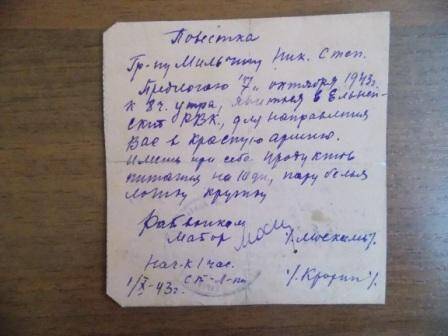 Повестка
Гр-ну Мильчину Ник. Степ.
Предлогаю "7" октября 1943г.
к 8 ч. утра, явится в Ельней-
ский РВК, для направления
Вас в Красную армию.
Иметь при себе продуктов
питания на 10 дн, пару белья
ложку кружку
Райвоенком
Майор /Москаль/.
Нач-к 1 час.
1/X-43г. ст-л-т /Кропин/.